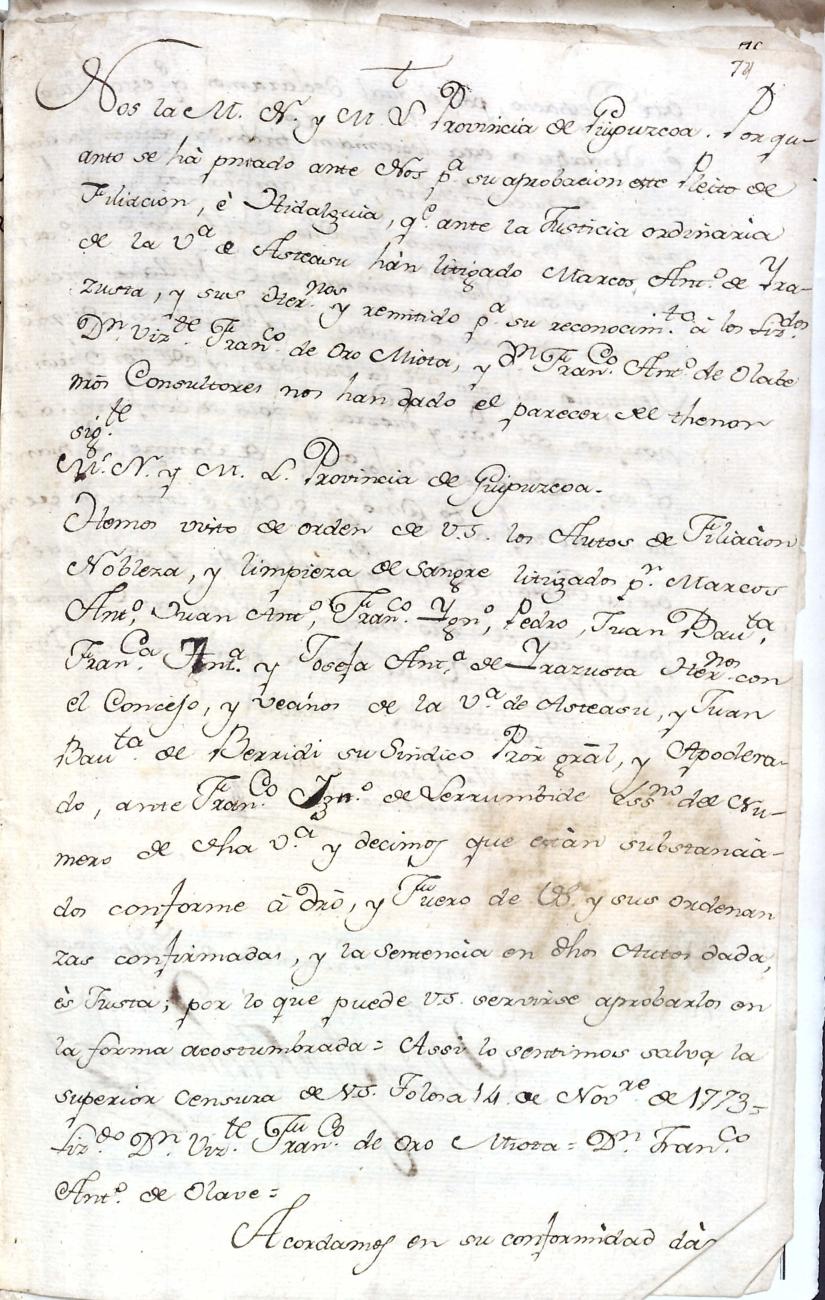 74
Nos la M. N. y M. L. Provincia de Guipuzcoa. Por qu-
anto se hà pntado ante Nos pª su aprobacion este Pleito de
Filiacion, è Hidalguia, qº ante la Justicia ordinaria
de la Vª de Asteasu hàn litigado Marcos Antº de Yra-
zusta, y sus Hernos y remitido pª su reconocimto à los Lizdos
Dn Vizte Franco de Oro Miota, y Dn Franco Antº de Olabe
nrõs Consultores nos han dado el parecer del thenor
sigte
M. N. y M. L. Provincia de Guipuzcoa.
Hemos visto de orden de V.S. los Autos de Filiàcion
Nobleza, y limpieza de Sangre litigados pr Marcos
Antº, Juan Antº, Franco Ygnº, Pedro, Juan Bauta,
Franca Antª y Josefa Antª de Yrazusta Hernos con
el Concejo, y vecinos de la Vª de Asteasu, y Juan
Bauta de Berridi su Sindico Prõr grãl, y Apodera-
do, ante Franco Ignº de Lerrumbide Essno del Nu-
mero de dha Vª y decimos que estàn substancia-
dos conforme à drõ, y Fuero de V.S. y sus ordenan
zas confirmadas, y la Sentencia en dhos Autos dada,
ès Justa; por lo que puede V.S. servirse aprobarlos en
la forma acostumbrada = Assi lo sentimos salva la
superior Censura de V.S. Tolosa 14 de Novre de 1773 =
Lizdo Dn Vizte Franco de Oro Miota = Dn Franco
Antº de Olave =
Acordamos en su conformidad dàr